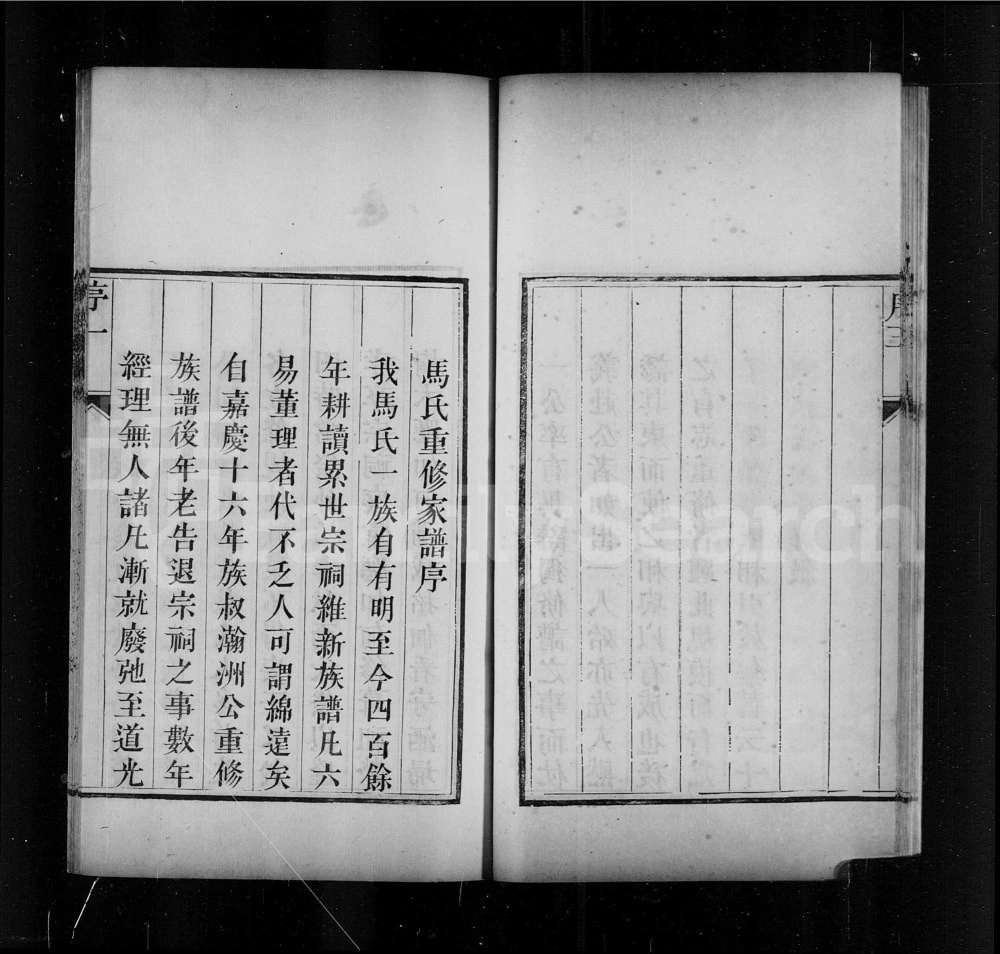 序三
馬氏重修家譜序
我馬氏一族自有明至今四百餘
年耕讀累世宗祠維新族譜凡六
易董理者代不乏人可謂綿遠矣
自嘉慶十六年族叔瀚洲公重修
族譜後年老告退宗祠之事數年
經理無人諸凡漸就廢弛至道光
序一